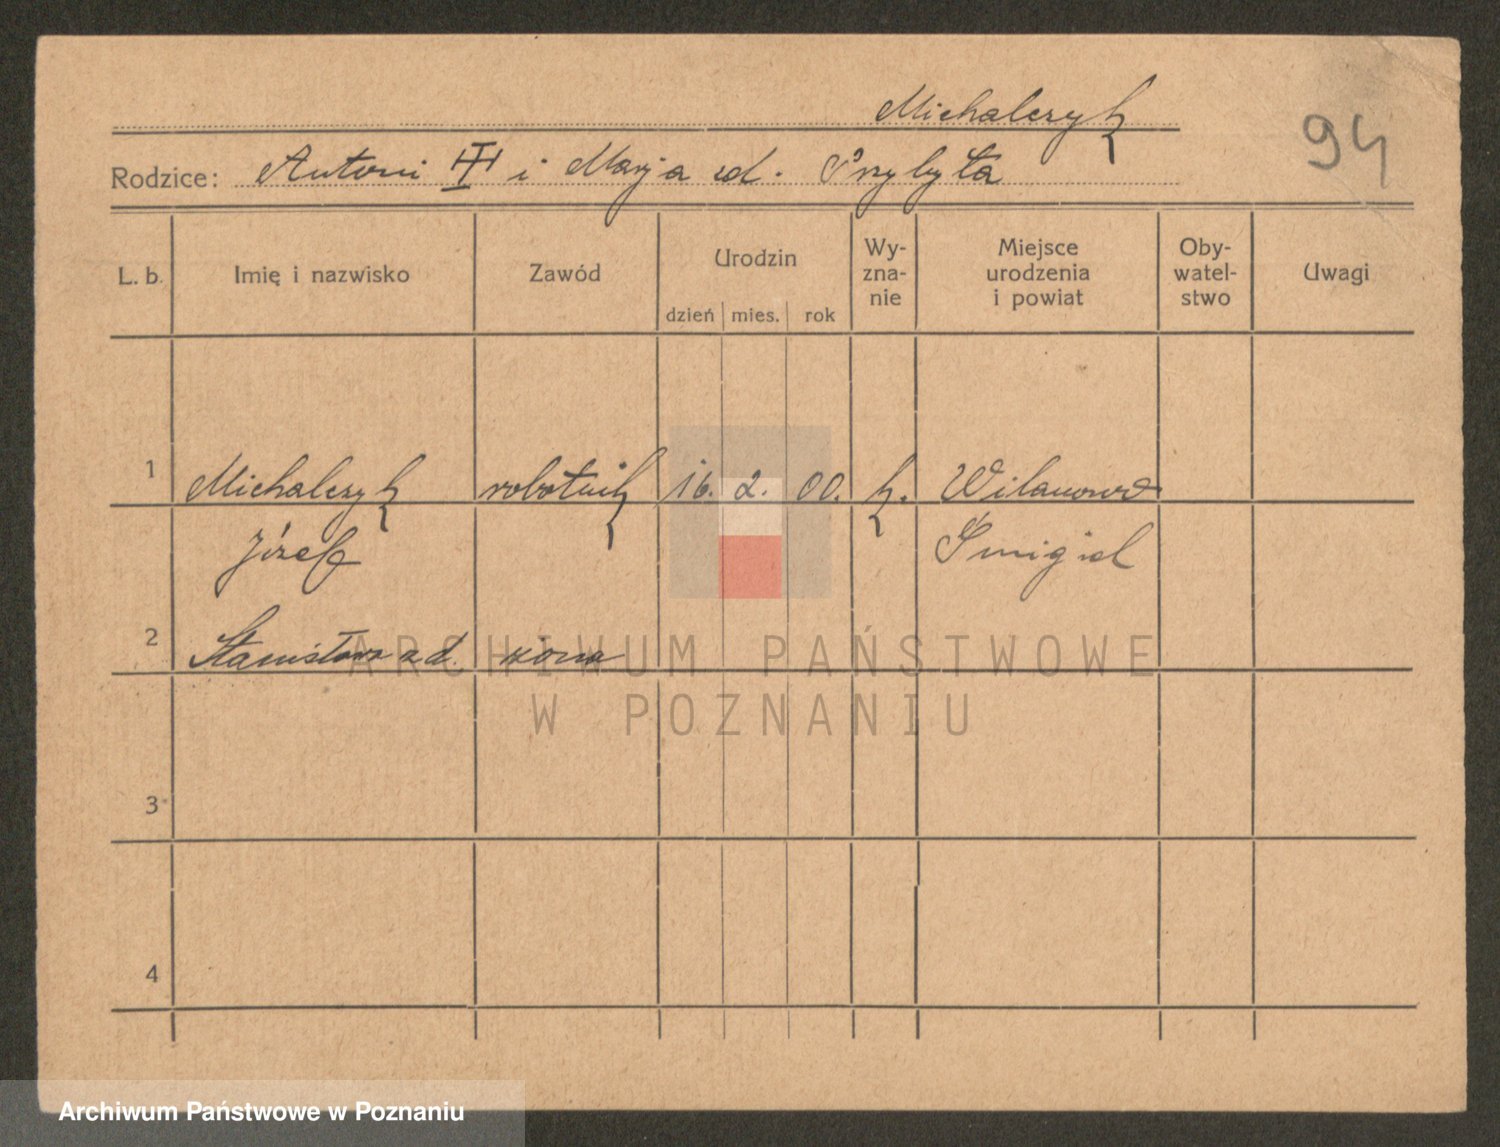 Michalczyk
94
Rodzice: Antoni i Marja zd. Przybyła
L. b. Imię i nazwisko Zawód Urodzin dzień mies. rok Wy-zna-nie Miejsce urodzenia i powiat Oby-watel-stwo Uwagi
1 Michalczyk robotnik 16. 2. 00. k. Wilanowo
Józef Śmigiel
2 Stanisława zd. żona
3
4
ARCHIWUM PAŃSTWOWE
W POZNANIU
Archiwum Państwowe w Poznaniu